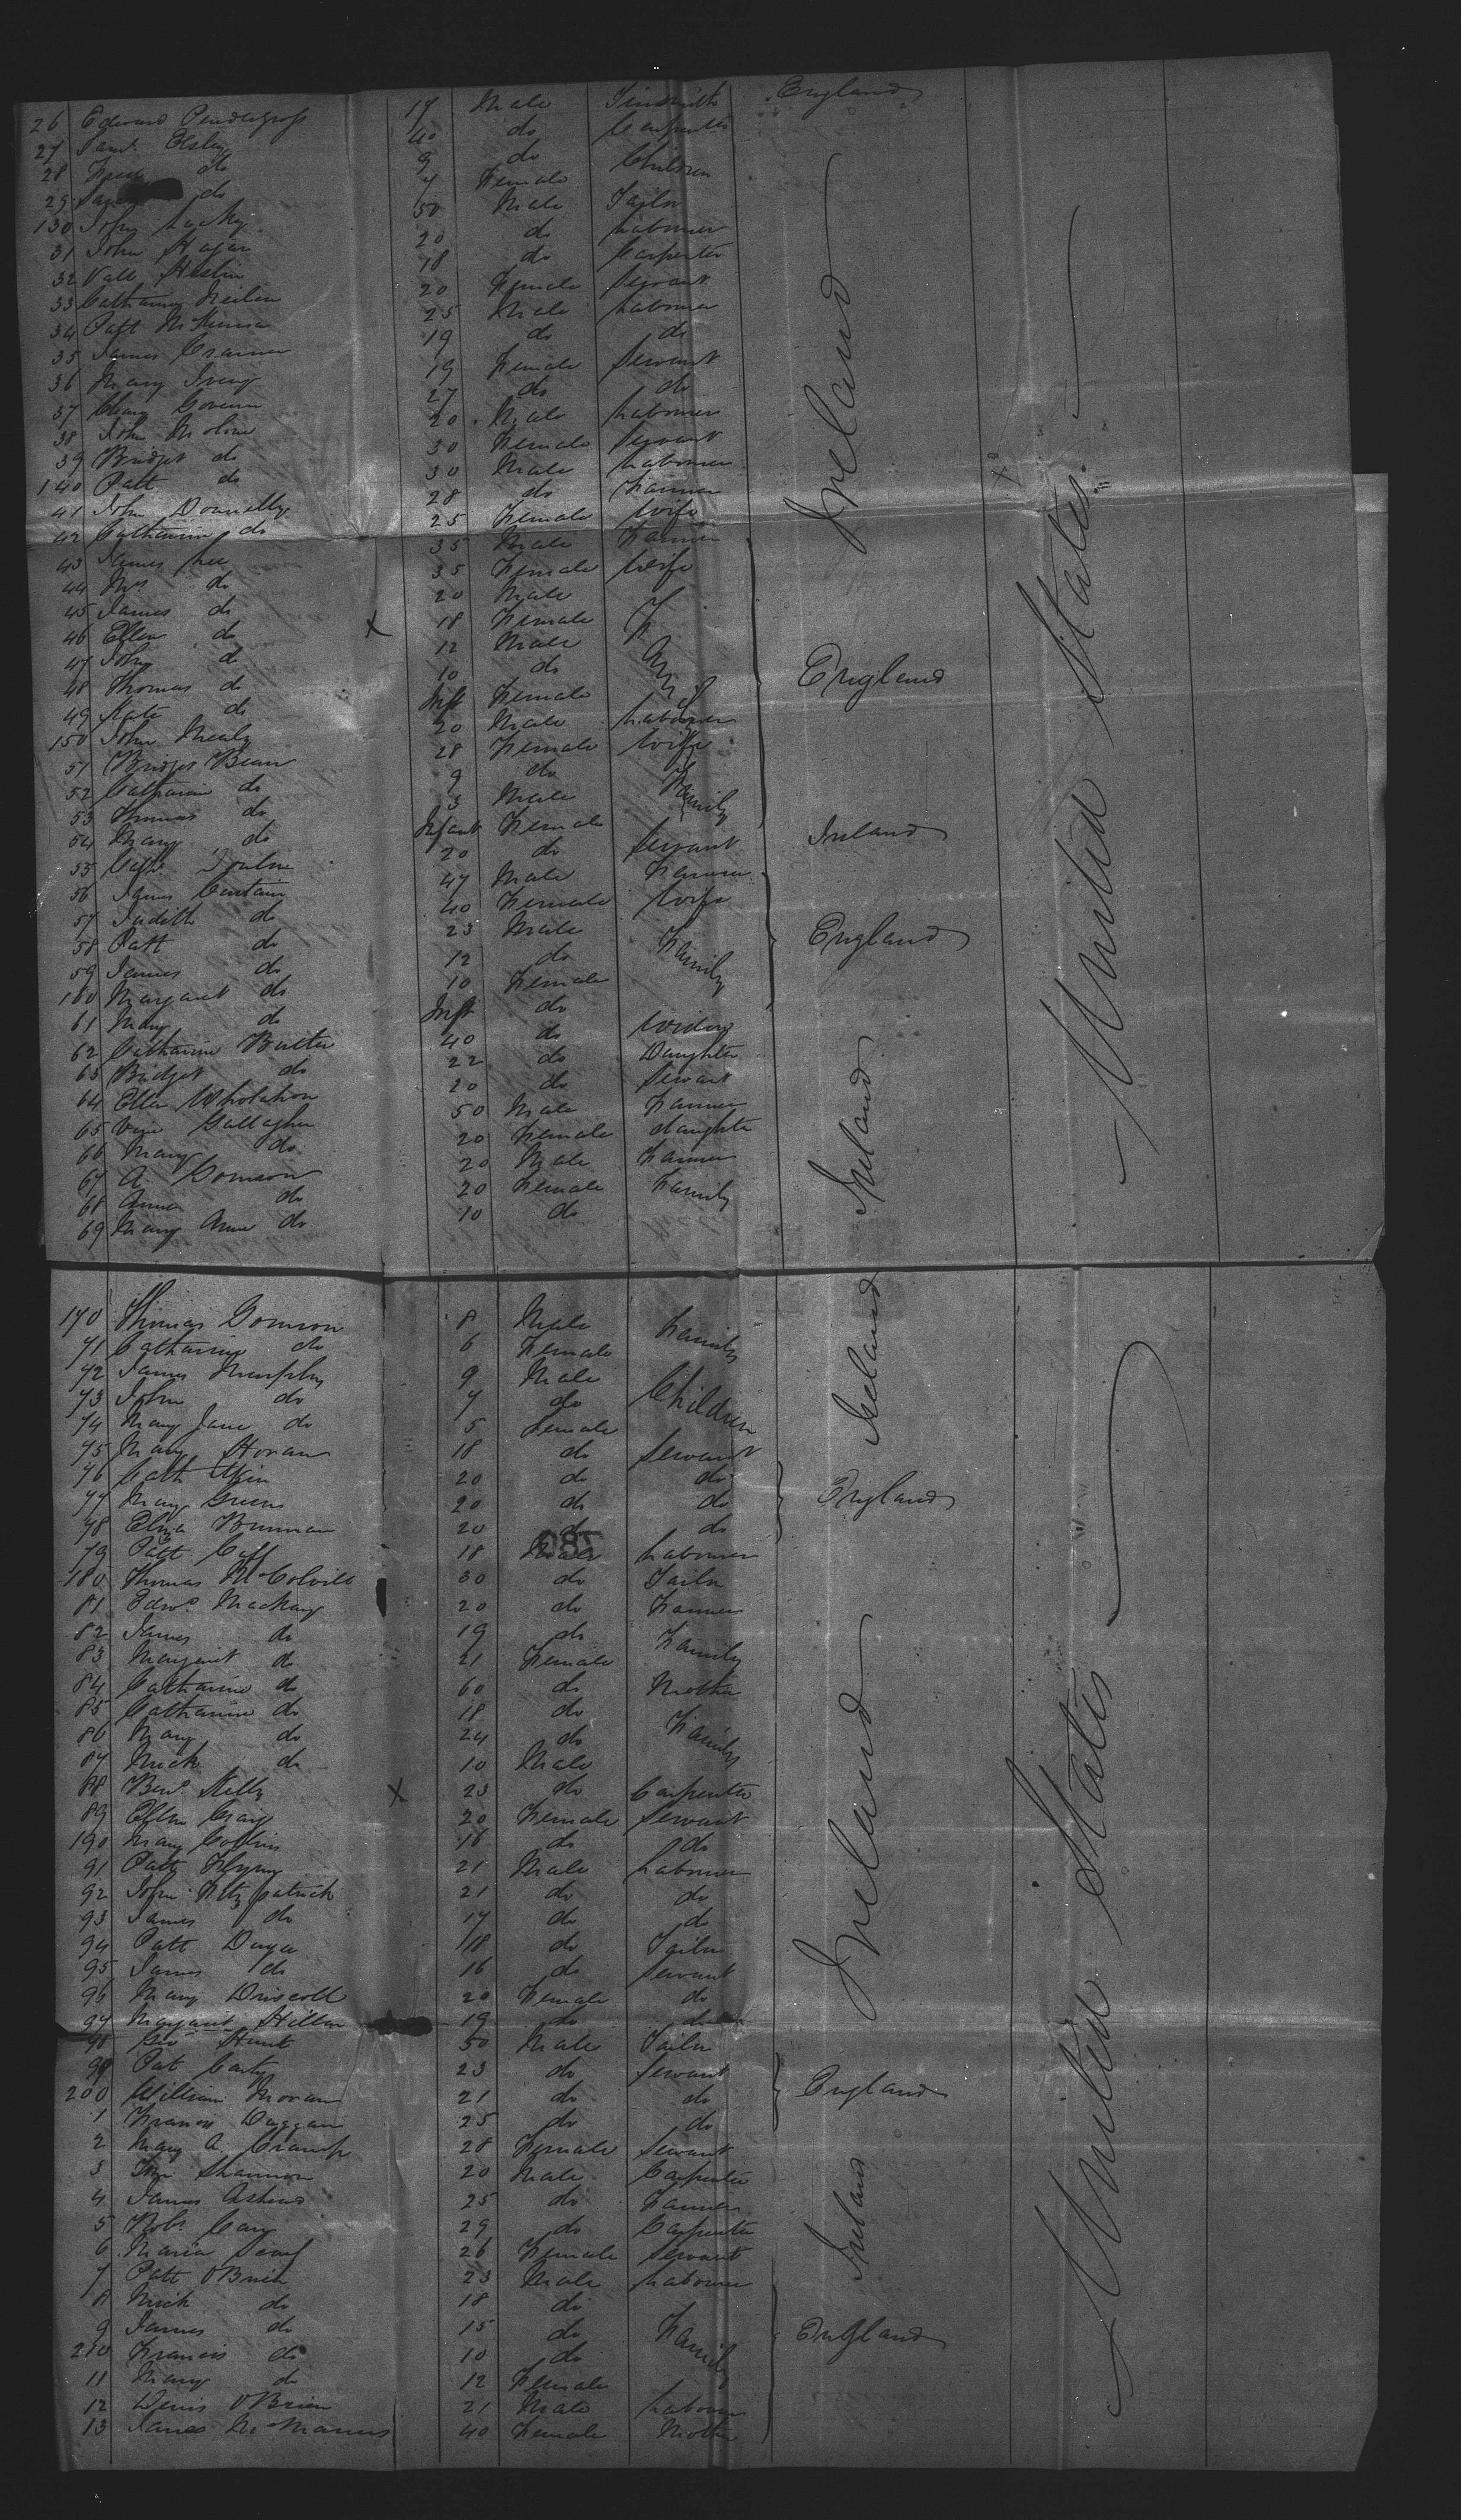 26 Edward Pendergrass 17 Male Tinsmith England
27 Saml. Elsley 40 do Carpenter
28 do 9 do Children
29 do 7 Female
130 John Lacky 50 Male Tailor
31 John Hagan 20 do Labourer
32 Patt Heslin 18 do Carpenter
33 Catharine Neilan 20 Female Servant
34 Patt McKenna 25 Male Labourer
35 James Crainer 19 do do
36 Mary Irvey 19 Female Servant
37 Govern 27 do do
38 John Moline 20 Male Labourer
39 Bridget do 30 Female Servant
140 Patt do 30 Male Labourer
41 John Donnelly 28 do Farmer
42 Catharine do 25 Female Wife Ireland
43 James Lee 35 Male Farmer
44 Mrs do 35 Female Wife
45 James do 20 Male
46 Ellen do X 18 Female
47 John do 12 Male
48 Thomas do 10 do England United States
49 Kate do Inft Female
150 John Nealy 20 Male Labourer
51 Bridget Bean 28 Female Wife
52 Catharine do 9 do Family
53 Thomas do 3 Male
54 Mary do Infant Female
55 Cath. 20 do Servant Ireland
56 James 47 Male Farmer
57 Judith do 40 Female Wife
58 Patt do 23 Male Family England
59 James do 12 do
160 Margaret do 10 Female
61 Mary do Inft do
62 Catharine Butler 40 do Widow
63 Bridget do 22 do Daughter
64 Ellen Wholahon 20 do Servant
65 Gallagher 50 Male Farmer
66 Mary do 20 Female daughter
67 A. Gomson 20 Male Farmer Ireland
68 Anne do 20 Female Family
69 Mary Anne do 10 do
170 Thomas Gomson 8 Male Family
71 Catharine do 6 Female
72 James Murphy 9 Male Ireland
73 John do 7 do Children
74 Mary Jane do 5 Female
75 Mary Horan 18 do Servant
76 Cath 20 do do
77 Mary Green 20 do do England
78 Eliza Brennan 20 do do
79 Patt Caff 18 Male Labourer
180 Thomas McColvill 30 do Tailor
81 Edwd. Mackay 20 do Farmer
82 James do 19 do Family
83 Margaret do 21 Female
84 Catharine do 60 do Mother
85 Catharine do 18 do
86 Mary do 24 do Family
87 Mick do 10 Male
88 Kelly X 23 do Carpenter
89 Ellen Craig 20 Female Servant
190 Mary Collins 16 do do
91 Patt Flynn 21 Male Labourer Ireland United States
92 John Fitzpatrick 21 do do
93 James do 17 do do
94 Patt Duya 18 do Tailor
95 James do 16 do Servant
96 Mary Driscoll 20 Female do
97 Margaret Hillon 19 do do
98 Geo Hunt 50 Male Tailor
99 Pat Carty 23 do Servant
200 William Moran 21 do do England
1 Francis Duggan 25 do do
2 Mary A. Crump 28 Female Servant
3 Shannon 20 Male Carpenter
4 James 25 do Farmer Ireland
5 Robt. Carey 29 do Carpenter
6 Maria 26 Female Servant
7 Patt OBrien 23 Male Labourer
8 Mick do 18 do
9 James do 15 do Family England
210 Francis do 10 do
11 Mary do 12 Female
12 Denis OBrien 21 Male Labourer
13 James McManus 40 Female Mother